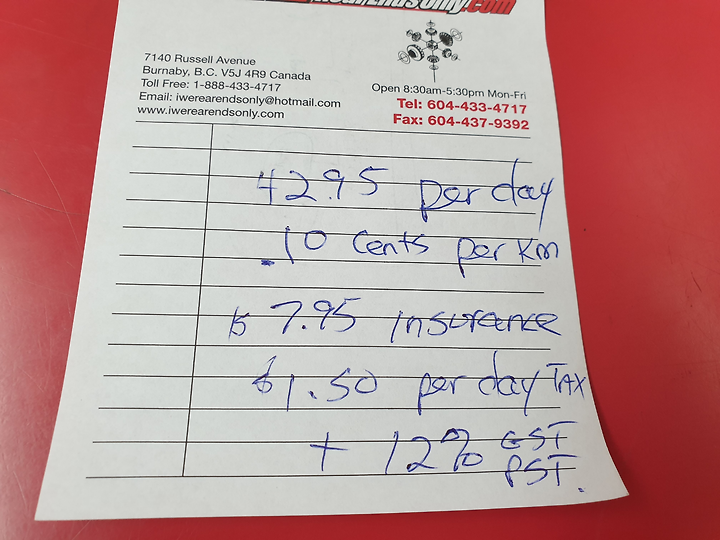 rearendsonly.com
7140 Russell Avenue
Burnaby, B.C. V5J 4R9 Canada
Toll Free: 1-888-433-4717
Email: iwerearendsonly@hotmail.com
www.iwerearendsonly.com
Open 8:30am-5:30pm Mon-Fri
Tel: 604-433-4717
Fax: 604-437-9392
42.95 per day
.10 cents per Km
$ 7.95 insurance
$1.50 per day TAX
+ 12% GST
PST.